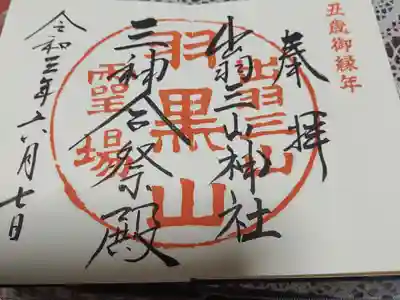 丑歳御縁年
奉拝
出羽三山神社
三神合祭殿
令和三年六月七日
出羽三山
羽黒山
霊場